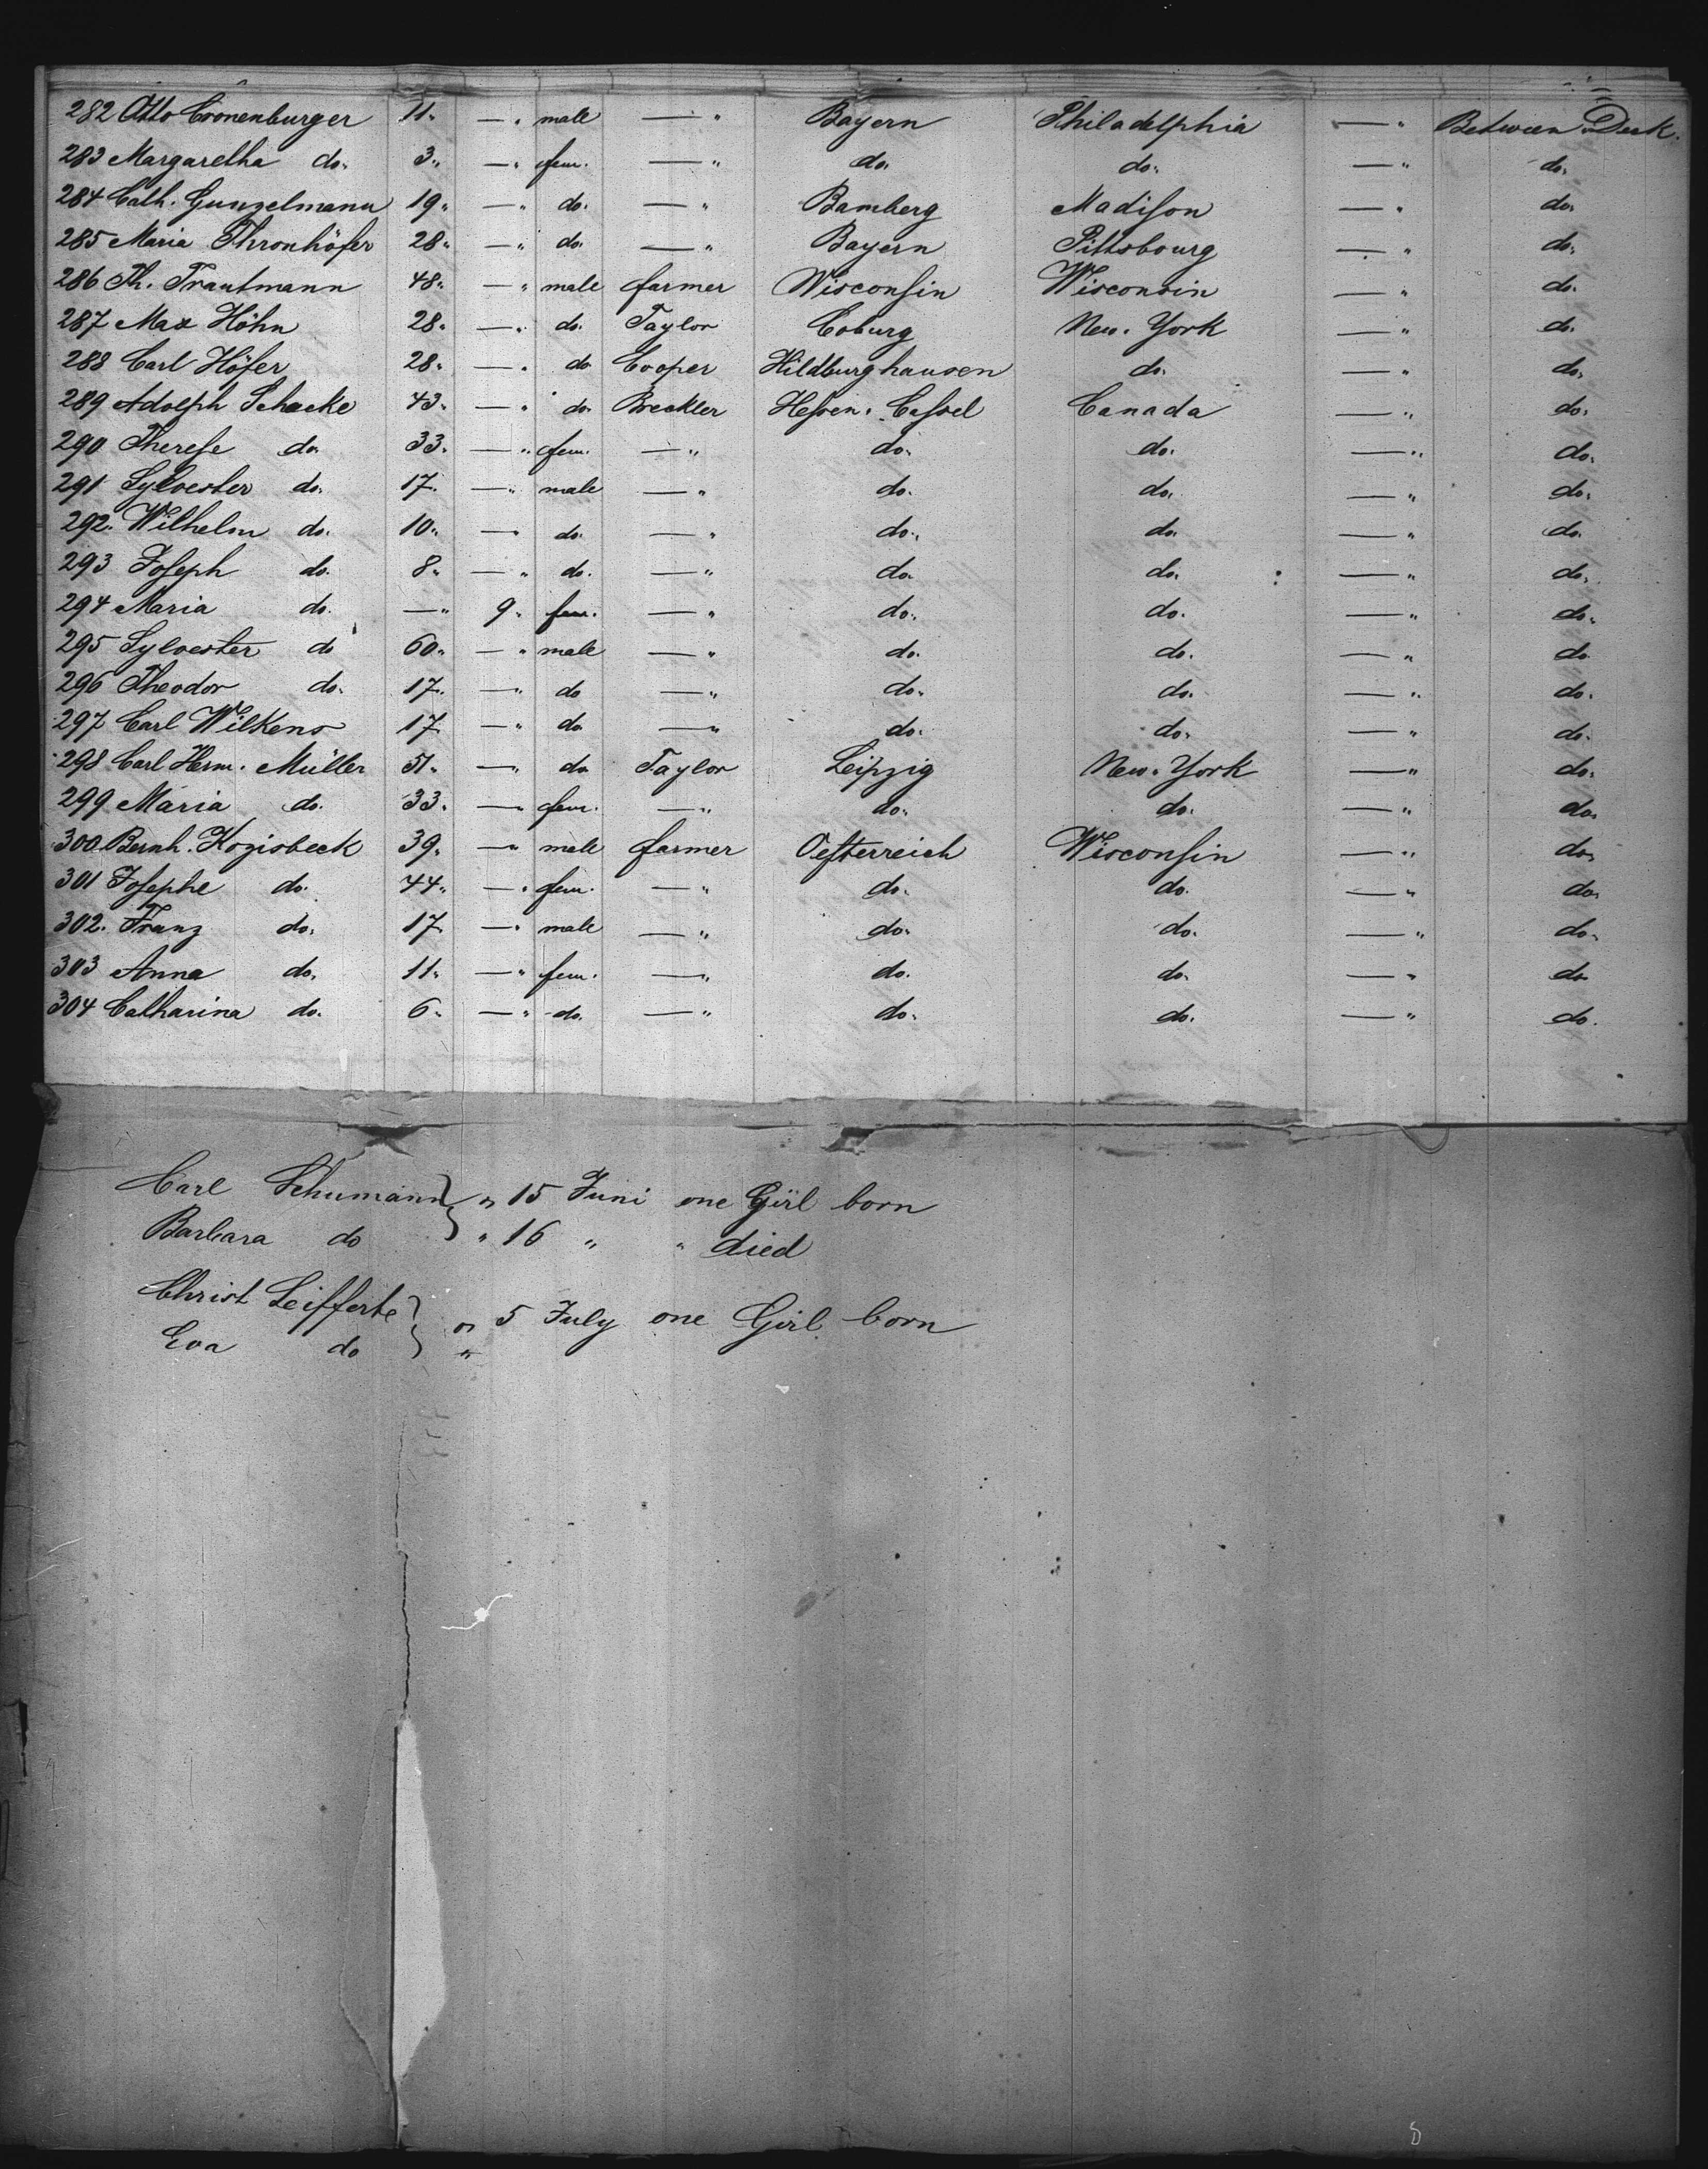 282 Otto Cronenburger 11 " — " male — " Bayern Philadelphia — " Between Deck.
283 Margaretha do. 3 " — " fem. — " do. do. — " do.
284 Cath. Gunzelmann 19 " — " do. — " Bamberg Madison — " do.
285 Maria Thronhöfer 28 " — " do. — " Bayern Pittsbourg — " do.
286 Th. Trautmann 48 " — " male farmer Wisconsin Wisconsin — " do.
287 Max Höhn 28 " — " do. Taylor Coburg New-York — " do.
288 Carl Höfer 28 " — " do Cooper Hildburghausen do. — " do.
289 Adolph Schacke 43 " — " do. Hessen-Cassel Canada — " do.
290 Therese do. 33 " — " fem. — " do. do. — " do.
291 Sylvester do. 17 " — " male — " do. do. — " do.
292. Wilhelm do. 10 " — " do. — " do. do. — " do.
293 Joseph do. 8 " — " do. — " do. do. — " do.
294 Maria do. — " 9 " fem. — " do. do. — " do.
295 Sylvester do 60 " — " male — " do. do. — " do.
296 Theodor do. 17 " — " do — " do. do. — " do.
297 Carl Wilkens 17 — " do — " do. do. — " do.
298 Carl Herm. Müller 51 " — " do Taylor Leipzig New-York — " do.
299 Maria do. 33 " — " fem. — " do. do. — " do.
300 Bernh. Kozisbeck 39 " — " male farmer Oesterreich Wisconsin — " do.
301 Josephe do. 44 " — " fem. — " do. do. — " do.
302. Franz do. 17 — " male — " do. do. — " do.
303 Anna do. 11 " — " fem. — " do. do. — " do.
304 Catharina do. 6 " — " do. — " do. do. — " do.
Carl Schumann } " 15 Juni one Girl born
Barbara do } " 16 " " died
Christ Leifferte } on 5 July one Girl born
Eva do } "